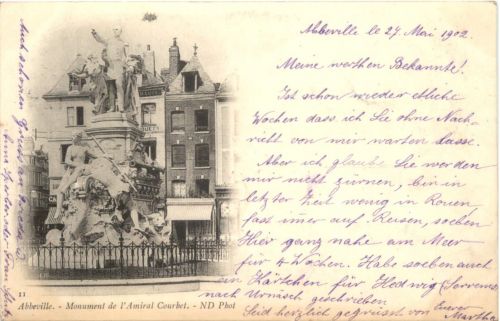 Abbeville le 27. Mai 1902.
Meine werthen Bekannte!
Ist schon wieder etliche
Wochen dass ich Sie ohne Nach-
richt von mir warten lasse.
Aber ich glaube Sie werden
mir nicht zürnen, bin in
letzter Zeit wenig in Rouen
fast imer auf Reisen, soeben
Hier ganz nahe am Meer
für 4 Wochen. Habe soeben auch
ein Kärtchen für Hedwig
nach Urnäsch geschrieben
Seid herzlich gegrüsst von Euerer
Martha
Auch schönen Gruss an
11
Abbeville. - Monument de l'Amiral Courbet. - ND Phot